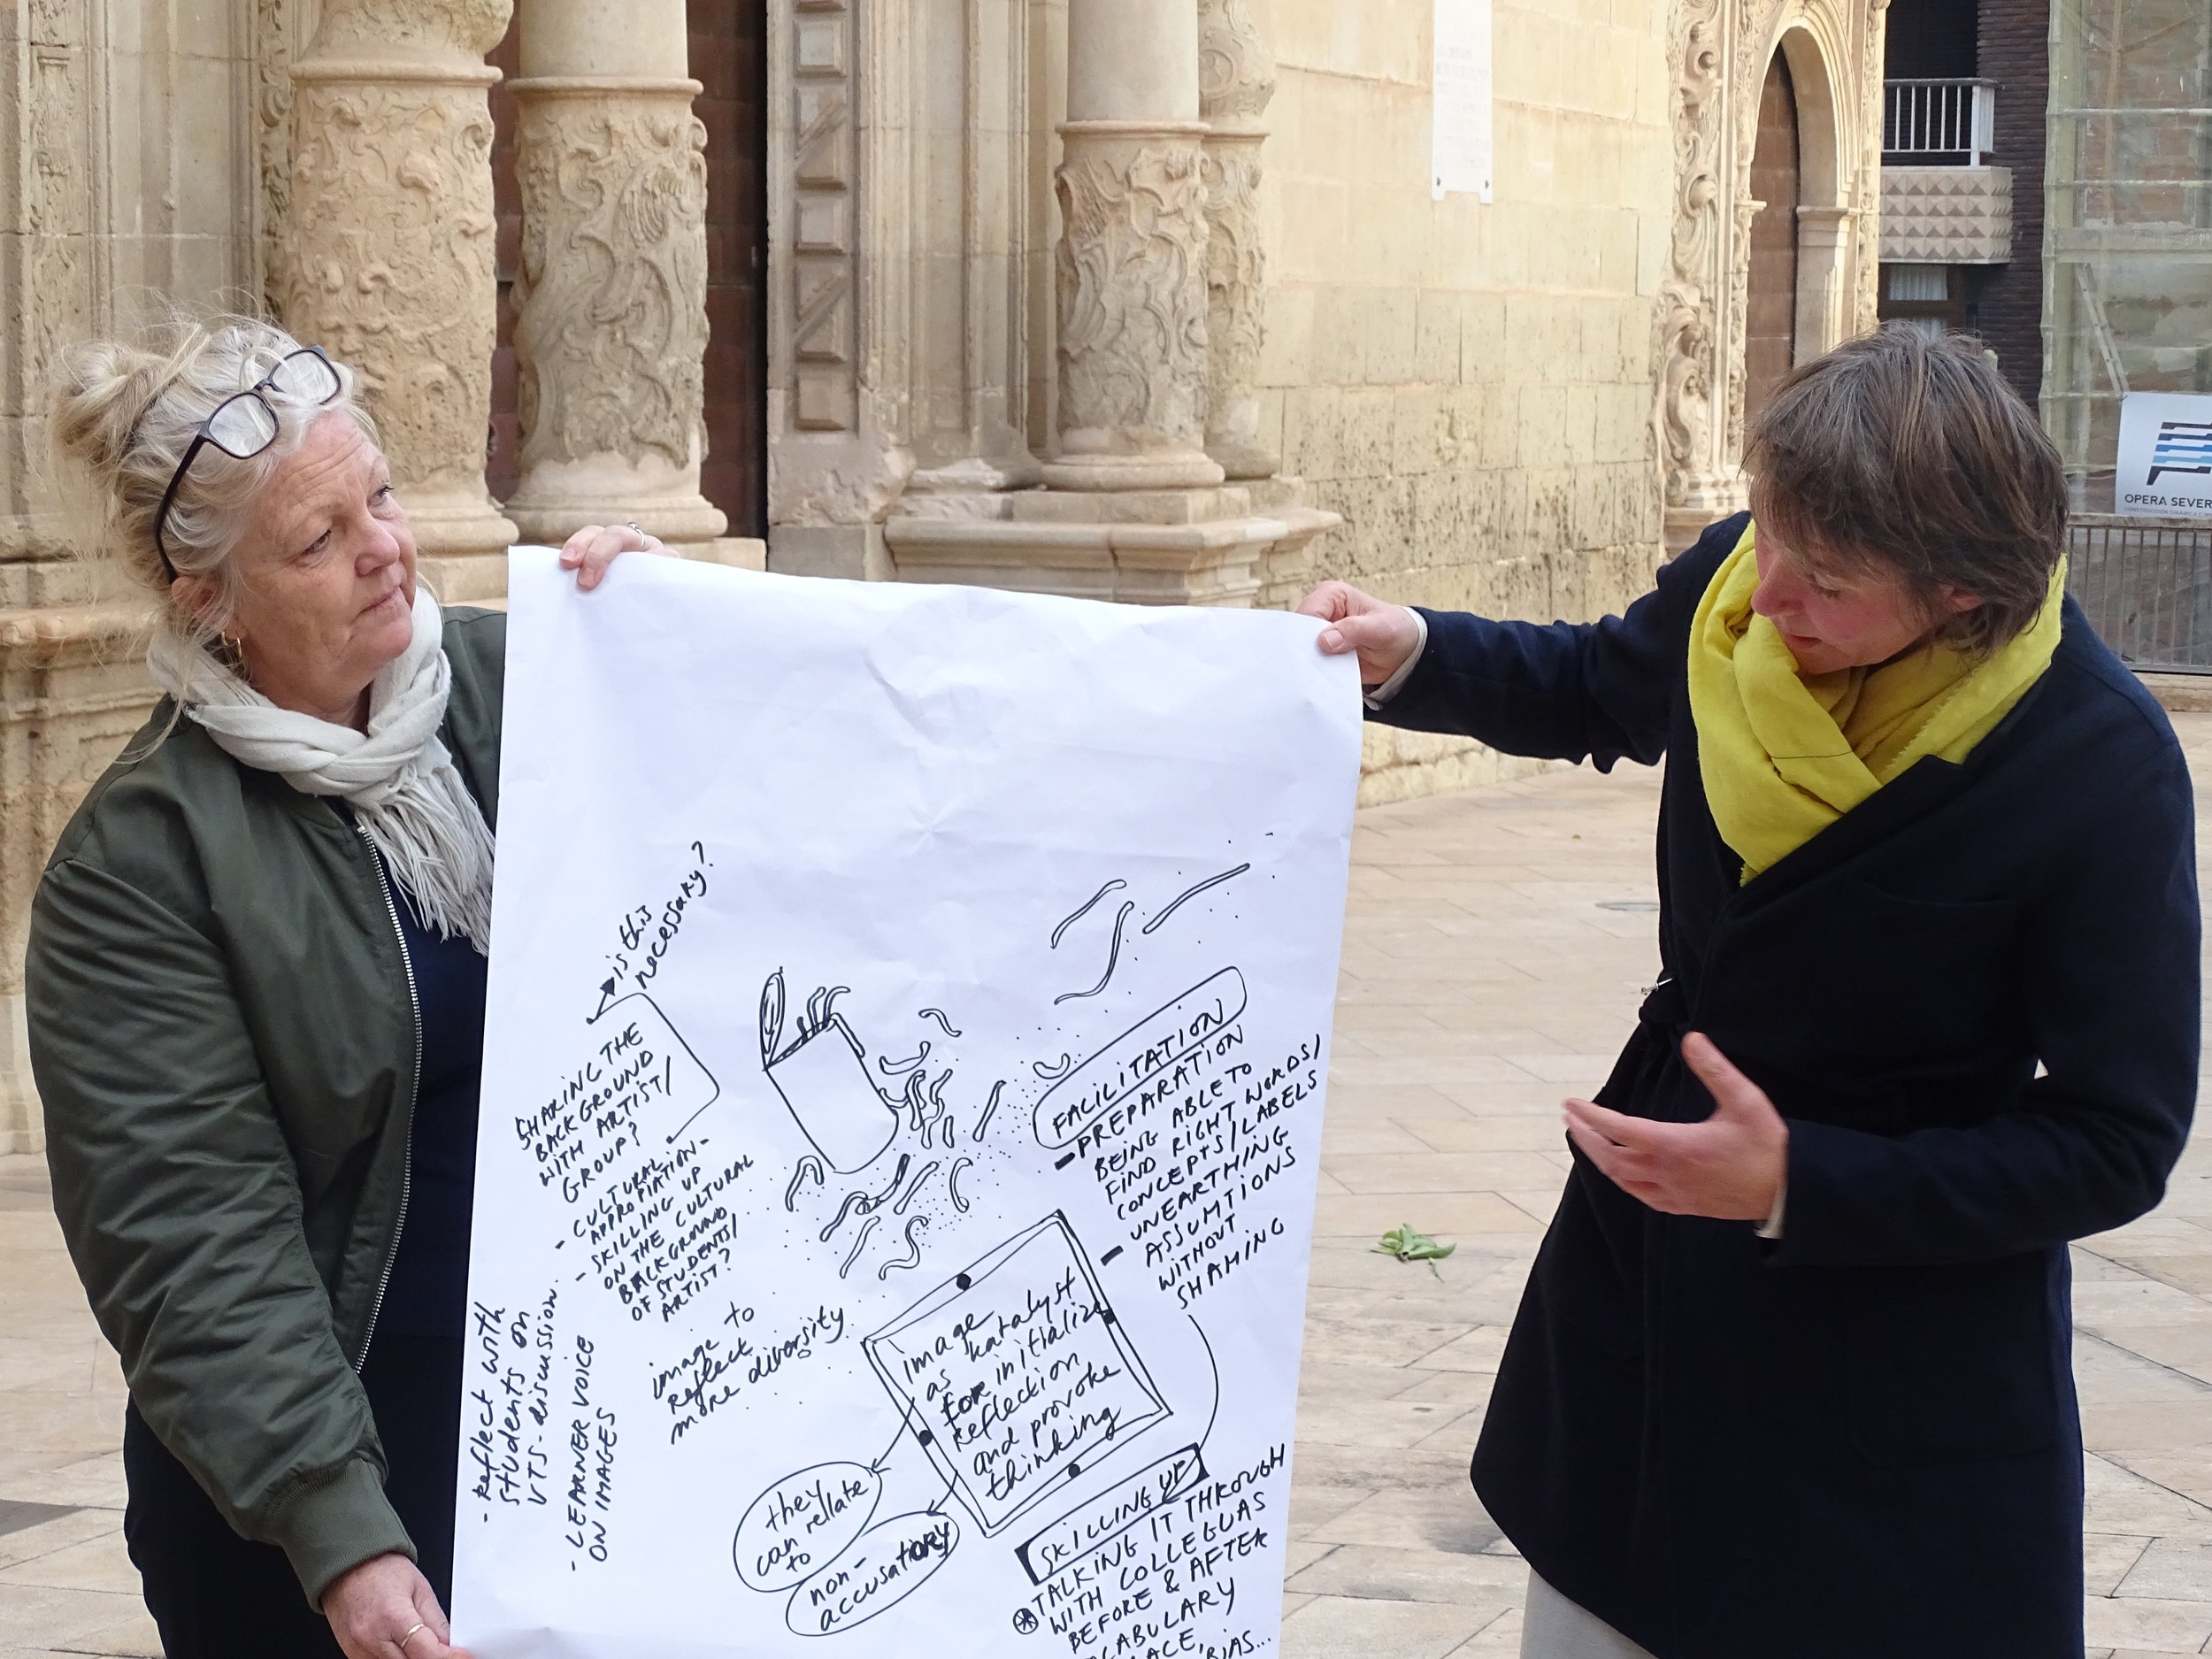 is this
necessary?
SHARING THE
BACKGROUND
WITH ARTIST/
GROUP?
- CULTURAL
APPROPIATION-
- SKILLING UP
ON THE CULTURAL
BACKGROUND
OF STUDENTS/
ARTIST?
- reflect with
students on
VTS-discussion.
- LEARNER VOICE
ON IMAGES
image to
reflect
more diversity
FACILITATION
- PREPARATION
BEING ABLE TO
FIND RIGHT WORDS/
CONCEPTS/LABELS
- UNEARTHING
ASSUMTIONS
WITHOUT
SHAMING
image
as katalyst
for initialize
reflection
and provoke
thinking
they
can rellate
to
non-
accusatory
SKILLING UP
TALKING IT THROUGH
WITH COLLEGUAS
BEFORE & AFTER
OPERA SEVER